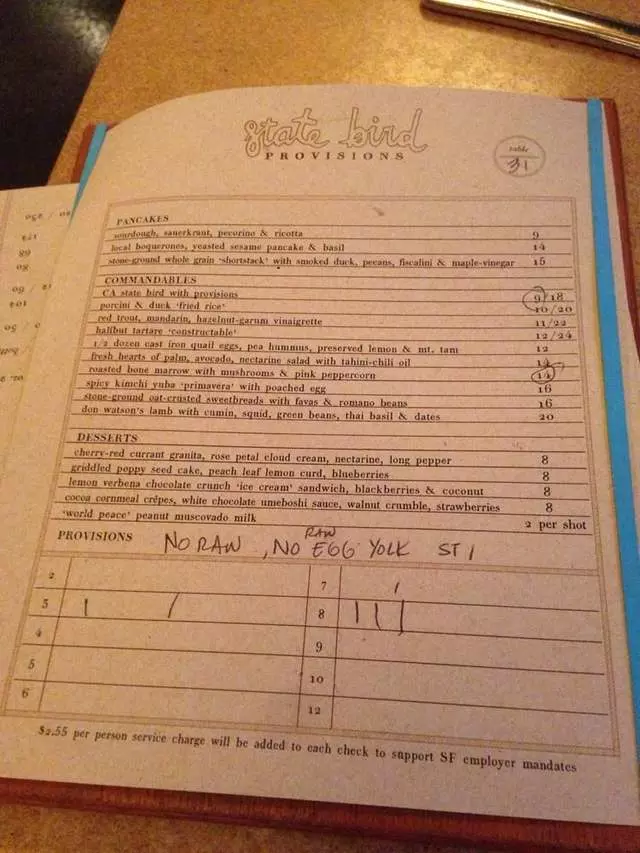 state bird
PROVISIONS
table
31
PANCAKES
sourdough, sauerkraut, pecorino & ricotta 9
local boquerones, yeasted sesame pancake & basil 14
stone-ground whole grain 'shortstack' with smoked duck, pecans, fiscalini & maple-vinegar 15
COMMANDABLES
CA state bird with provisions 9/18
porcini & duck 'fried rice' 10/20
red trout, mandarin, hazelnut-garum vinaigrette 11/22
halibut tartare 'constructable' 12/24
1/2 dozen cast iron quail eggs, pea hummus, preserved lemon & mt. tam 12
fresh hearts of palm, avocado, nectarine salad with tahini-chili oil 14
roasted bone marrow with mushrooms & pink peppercorn 14
spicy kimchi yuba 'primavera' with poached egg 16
stone-ground oat-crusted sweetbreads with favas & romano beans 16
don watson's lamb with cumin, squid, green beans, thai basil & dates 20
DESSERTS
cherry-red currant granita, rose petal cloud cream, nectarine, long pepper 8
griddled poppy seed cake, peach leaf lemon curd, blueberries 8
lemon verbena chocolate crunch 'ice cream' sandwich, blackberries & coconut 8
cocoa cornmeal crêpes, white chocolate umeboshi sauce, walnut crumble, strawberries 8
'world peace' peanut muscovado milk 2 per shot
PROVISIONS NO RAW, NO RAW EGG YOLK ST 1
2 7
3 8
4 9
5 10
6 12
$2.55 per person service charge will be added to each check to support SF employer mandates